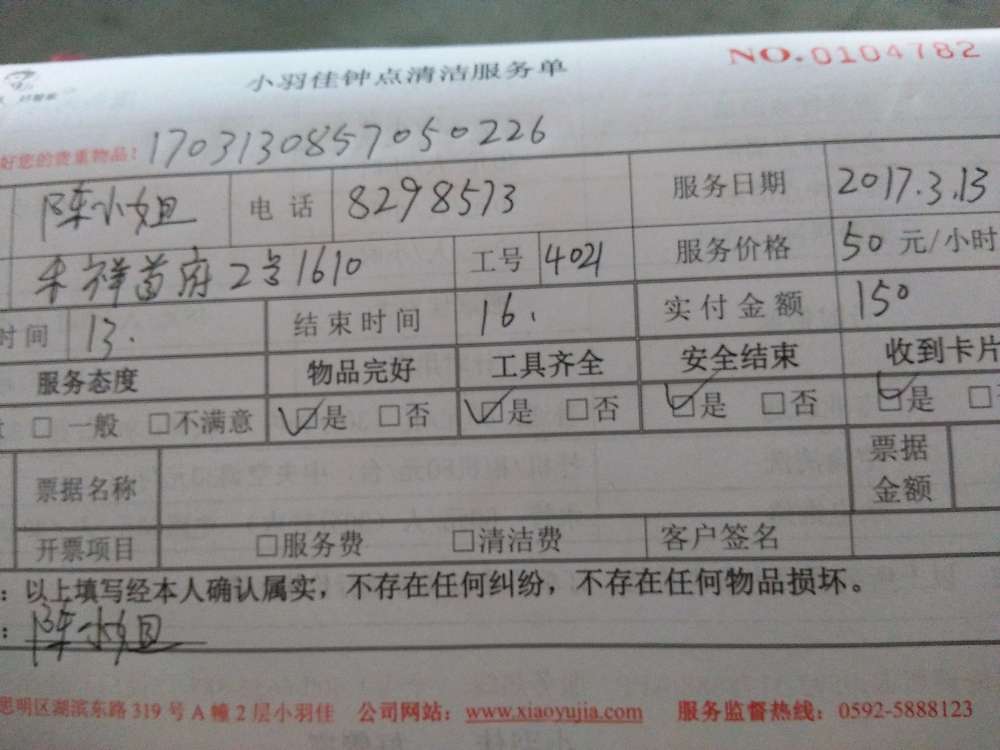 小羽佳钟点清洁服务单
NO.0104782
好您的贵重物品：1703130857050226
陈小姐 电话 8298573 服务日期 2017.3.13
禾祥首府2号1610 工号 4021 服务价格 50元/小时
时间 13. 结束时间 16. 实付金额 150
服务态度 物品完好 工具齐全 安全结束 收到卡片
□ 一般 □不满意 ☑是 □否 ☑是 □否 ☑是 □否 ☑是 □
票据名称 票据金额
开票项目 □服务费 □清洁费 客户签名
：以上填写经本人确认属实，不存在任何纠纷，不存在任何物品损坏。
：陈小姐
思明区湖滨东路319号A幢2层小羽佳 公司网站：www.xiaoyujia.com 服务监督热线：0592-5888123